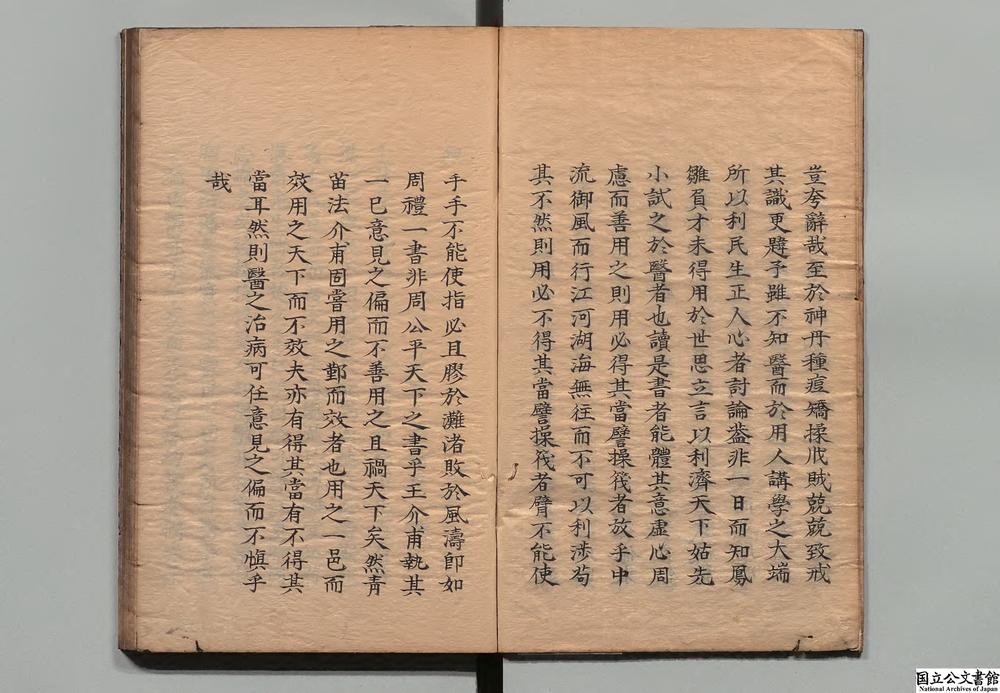 豈夸辭哉至於神丹種痘矯揉戕賊兢兢致戒
其識更韙予雖不知醫而於用人講學之大端
所以利民生正人心者討論葢非一日而知鳳
雛負才未得用於世思立言以利濟天下姑先
小試之於醫者也讀是書者能體其意虛心周
慮而善用之則用必得其當譬操筏者放乎中
流御風而行江河湖海無徃而不可以利涉茍
其不然則用必不得其當譬操筏者臂不能使
手手不能使指必且膠於灘渚敗於風濤卽如
周禮一書非周公平天下之書乎王介甫執其
一已意見之偏而不善用之且禍天下矣然青
苗法介甫固嘗用之鄞而效者也用之一邑而
效用之天下而不效夫亦有得其當有不得其
當耳然則醫之治病可任意見之偏而不愼乎
哉
国立公文書館
National Archives of Japan